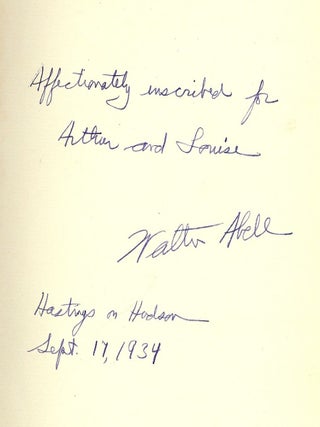 Affectionately inscribed for
Arthur and Louise
Walter Abell
Hastings on Hudson
Sept. 17, 1934